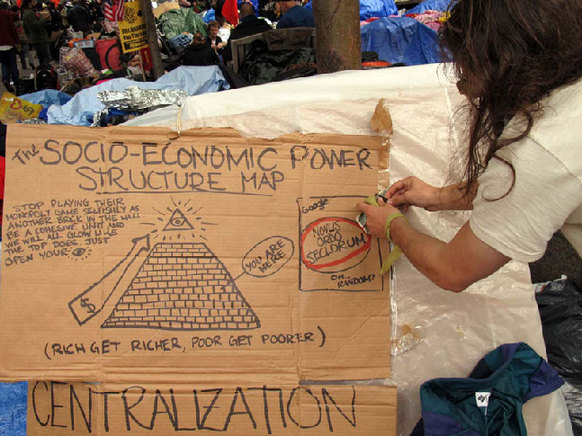 The SOCIO-ECONOMIC POWER
STRUCTURE MAP
STOP PLAYING THEIR
MONOPOLY GAME SELFISHLY AS
ANOTHER BRICK IN THE WALL
BE A COHESIVE UNIT AND
WE WILL ALL GLOW LIKE
THE TOP DOES. JUST
OPEN YOUR
$
YOU ARE
HERE
Google
NOVUS
ORDO
SECLORUM
OH...
RANDOM?
(RICH GET RICHER, POOR GET POORER)
CENTRALIZATION